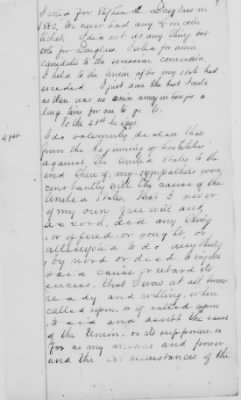 I voted for Stephen A. Douglass in
1860. We never had any Lincoln
ticket. I did not do any thing but
vote for Douglass. I voted for union
candidate to the secession convention
I held to the union after my state had
seceded. I just done the best I could
as there was no union army in here for a
long time for me to go to.
To the 21st he says
21st
I do solemnly declare that
from the beginning of hostilities
against the United States to the
end thereof, my sympathies were
constantly with the cause of the
United States, that I never
of my own free will and
accord, did any thing
or offered, or sought, or
attempted to do any thing
by word or deed to injure
said cause or retard its
success, that I was at all times
ready and willing, when
called upon, or if called upon
to aid and assist the cause
of the Union, or its supporters, so
far as my means and power
and the circumstances of the